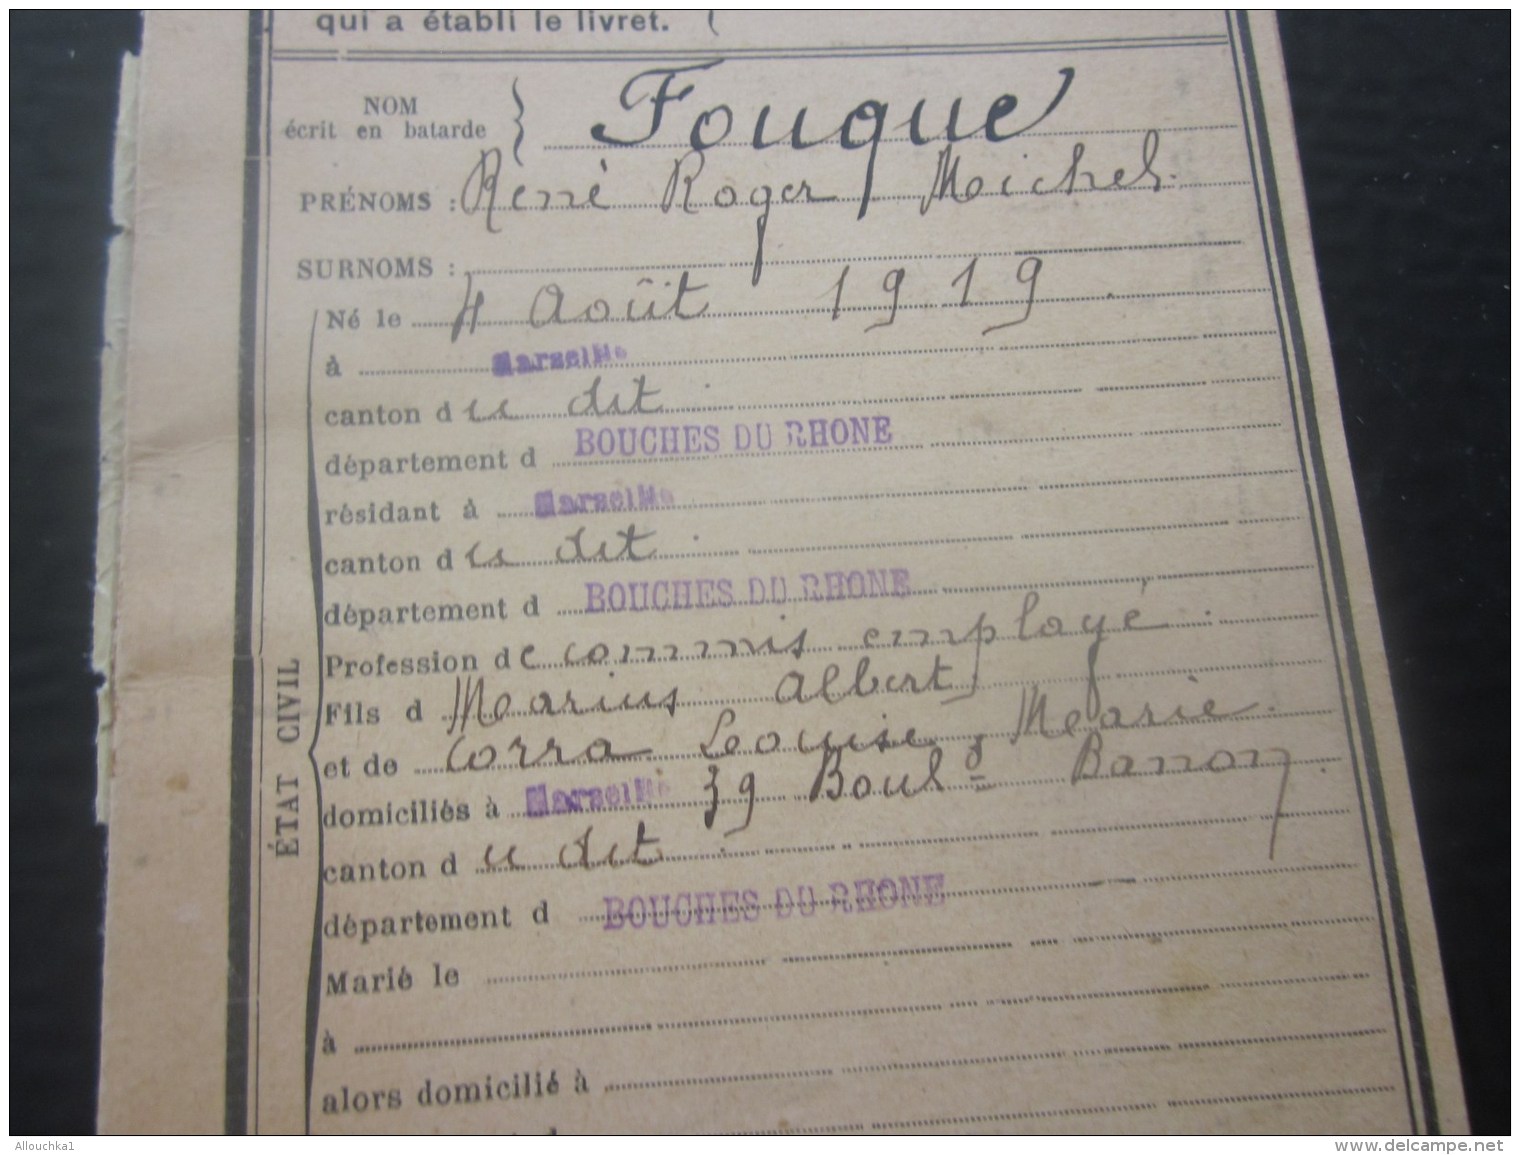 qui a établi le livret.
NOM
écrit en batarde Fouque
PRÉNOMS : René Roger Michel.
SURNOMS :
Né le 4 Août 1919
à Marseille
canton du dit
département d BOUCHES DU RHONE
résidant à Marseille
canton du dit
département d BOUCHES DU RHONE
Profession de commis employé
Fils d Marius Albert
et de Corra Leouise, Marie.
domiciliés à Marseille 39 Boulᵈ Banon
canton du dit
département d BOUCHES DU RHONE
Marié le
à
alors domicilié à
ÉTAT CIVIL
Allouchka1
www.delcampe.net